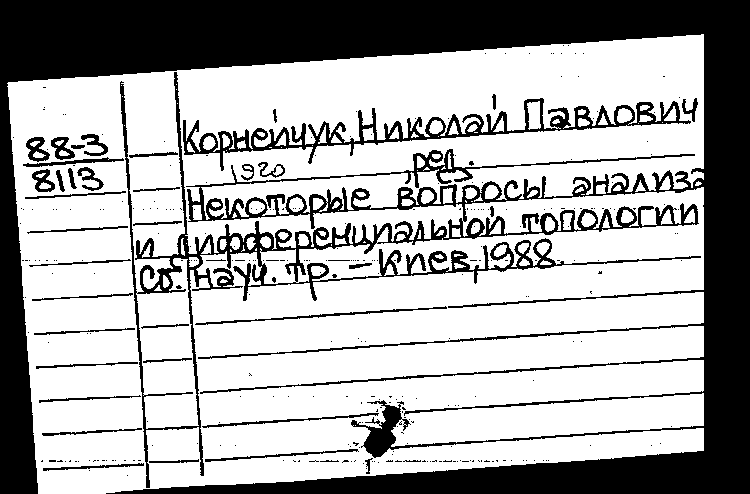 88-3
8113
Корнейчук, Николай Павлович
1920
, ред.
Некоторые вопросы анализа
и дифференциальной топологии
Сб. науч. тр. – Киев, 1988.